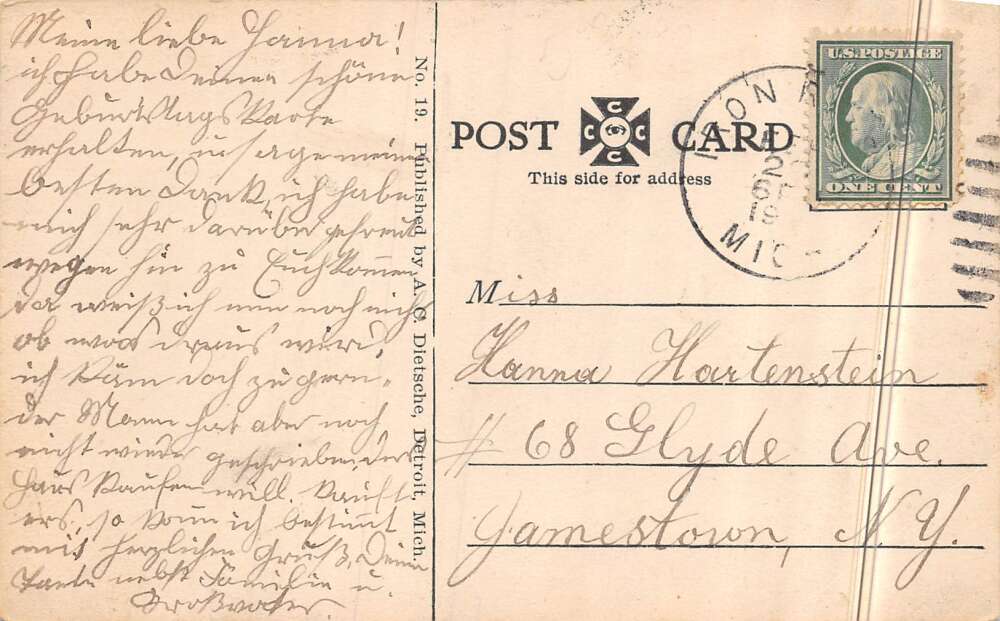 Meine liebe Hanna!
ich habe Deinen schöne
Geburtstags Karte
erhalten, u sage meinen
besten Dank, ich habe
mich sehr darüber gefreut
wegen hin zu Euch kommen
da weiß ich nun noch nicht
ob was draus wird,
ich käm doch zu gern,
der Mann hat aber noch
nicht wieder geschrieben, der
Haus kaufen will. Kauft
ers, so komm ich bestimmt
mit herzlichen Gruß, Deine
Tante nebst Familie u.
Großvater.
No. 19. Published by A. C. Dietsche, Detroit, Mich.
POST CARD
C C C C
This side for address
IRON R
2
MICH
U.S. POSTAGE
ONE CENT
Miss
Hanna Hartenstein
# 68 Glyde Ave.
Jamestown, N.Y.